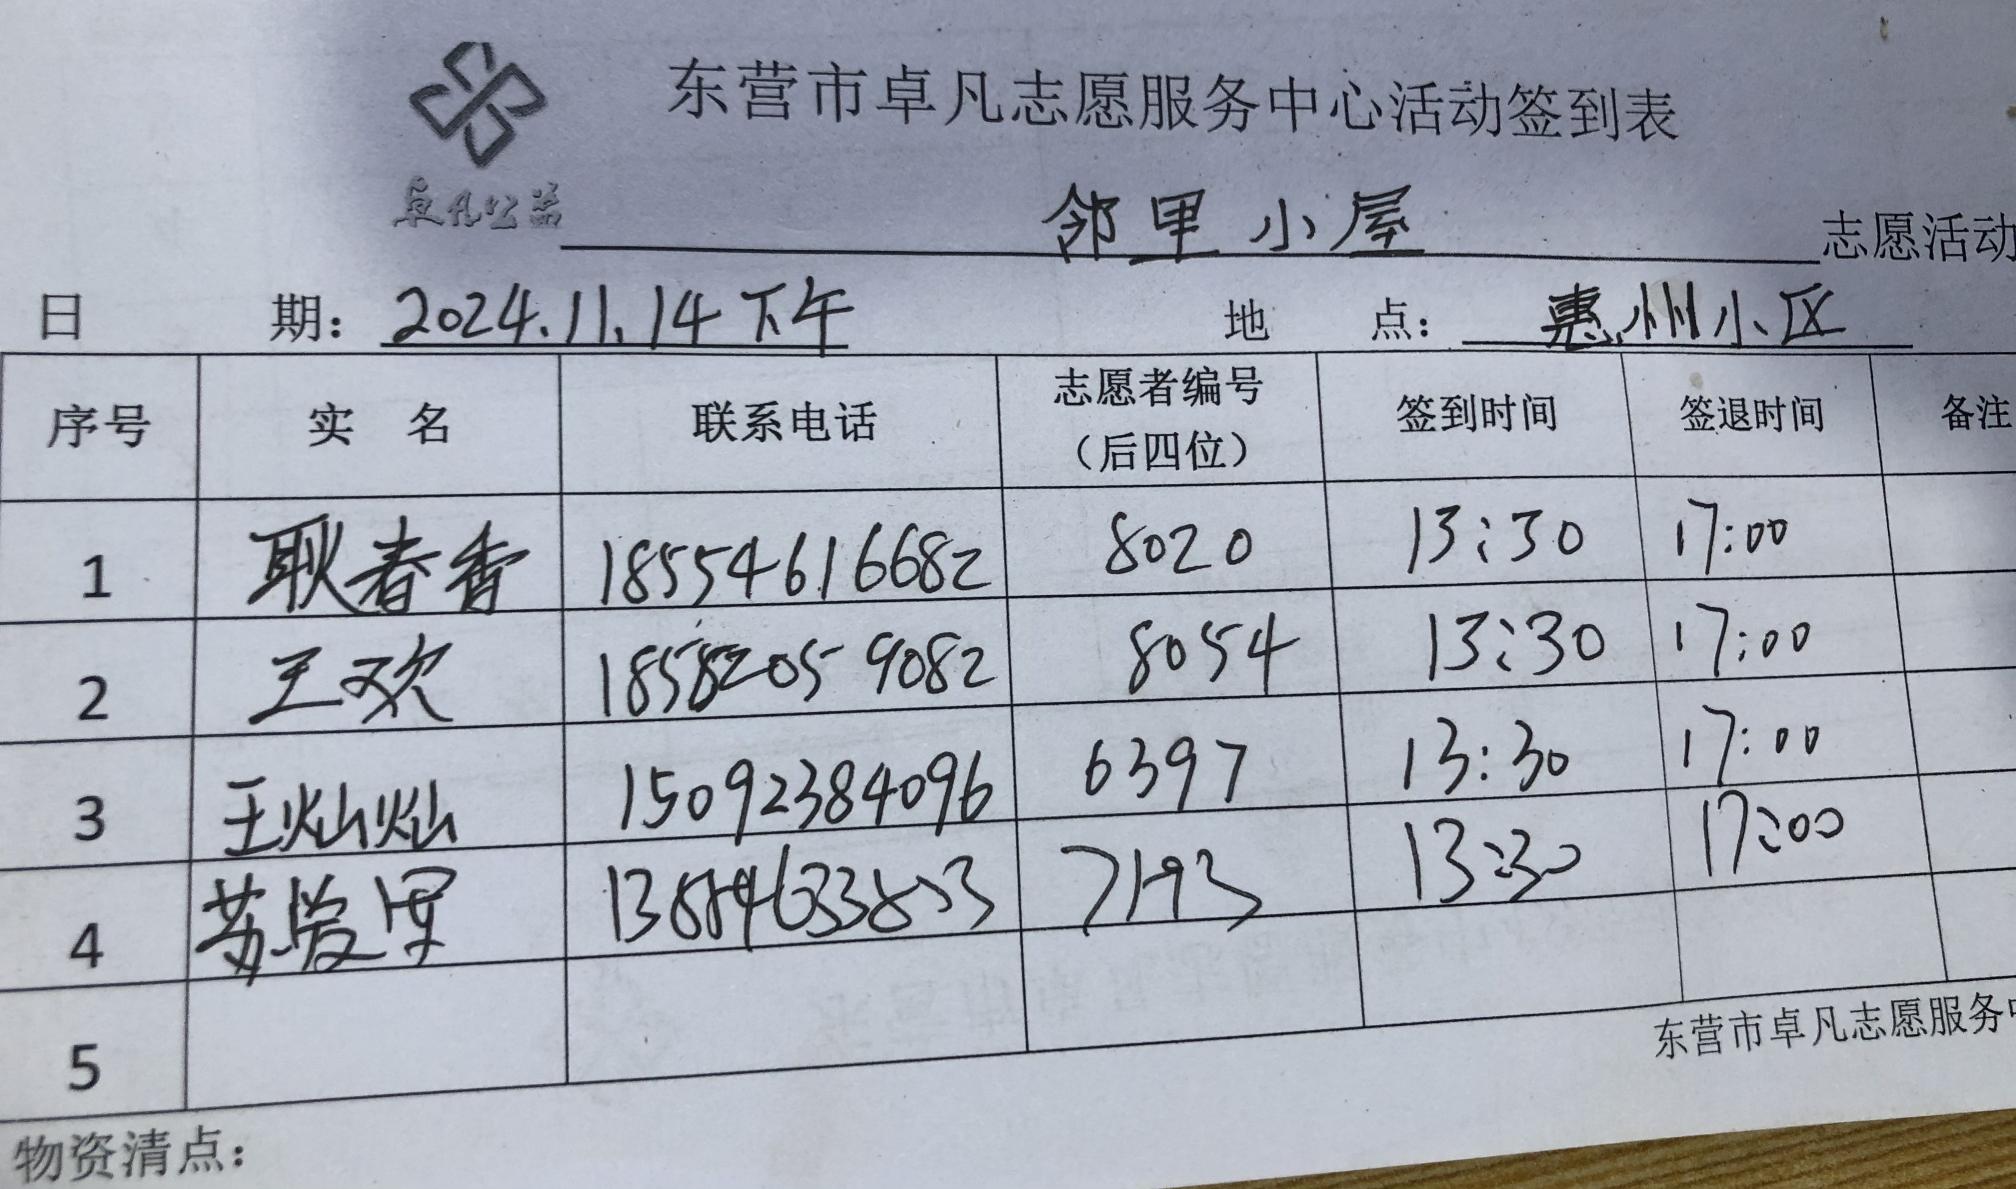 东营市卓凡志愿服务中心活动签到表
卓凡公益
邻里小屋 志愿活动
日 期：2024.11.14下午 地 点：惠州小区
序号 实 名 联系电话 志愿者编号（后四位） 签到时间 签退时间 备注
1 耿春香 18554616682 8020 13:30 17:00
2 王欢 18582059082 8054 13:30 17:00
3 王灿灿 15092384096 6397 13:30 17:00
4 苏爱军 7193 13:30 17:00
5
东营市卓凡志愿服务中
物资清点：